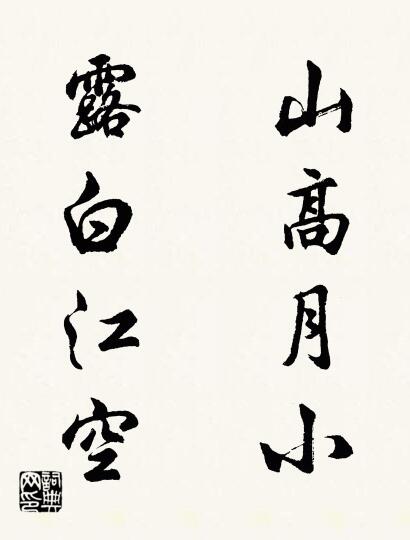 山高月小
露白江空
詞典网印